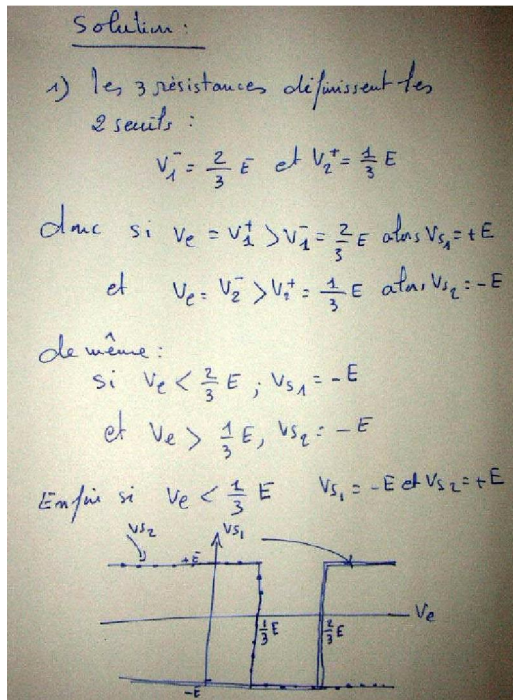 Solution :
1) les 3 résistances définissent les
2 seuils :
V₁⁻ = 2/3 E et V₂⁺ = 1/3 E
donc si Ve = V₁⁺ > V₁⁻ = 2/3 E alors Vs₁ = + E
et Ve = V₂⁻ > V₂⁺ = 1/3 E alors Vs₂ = - E
de même :
si Ve < 2/3 E , Vs₁ = - E
et Ve > 1/3 E, Vs₂ = - E
Enfin si Ve < 1/3 E Vs₁ = - E et Vs₂ = + E
Vs₂ Vs₁
+E
Ve
1/3 E 2/3 E
-E